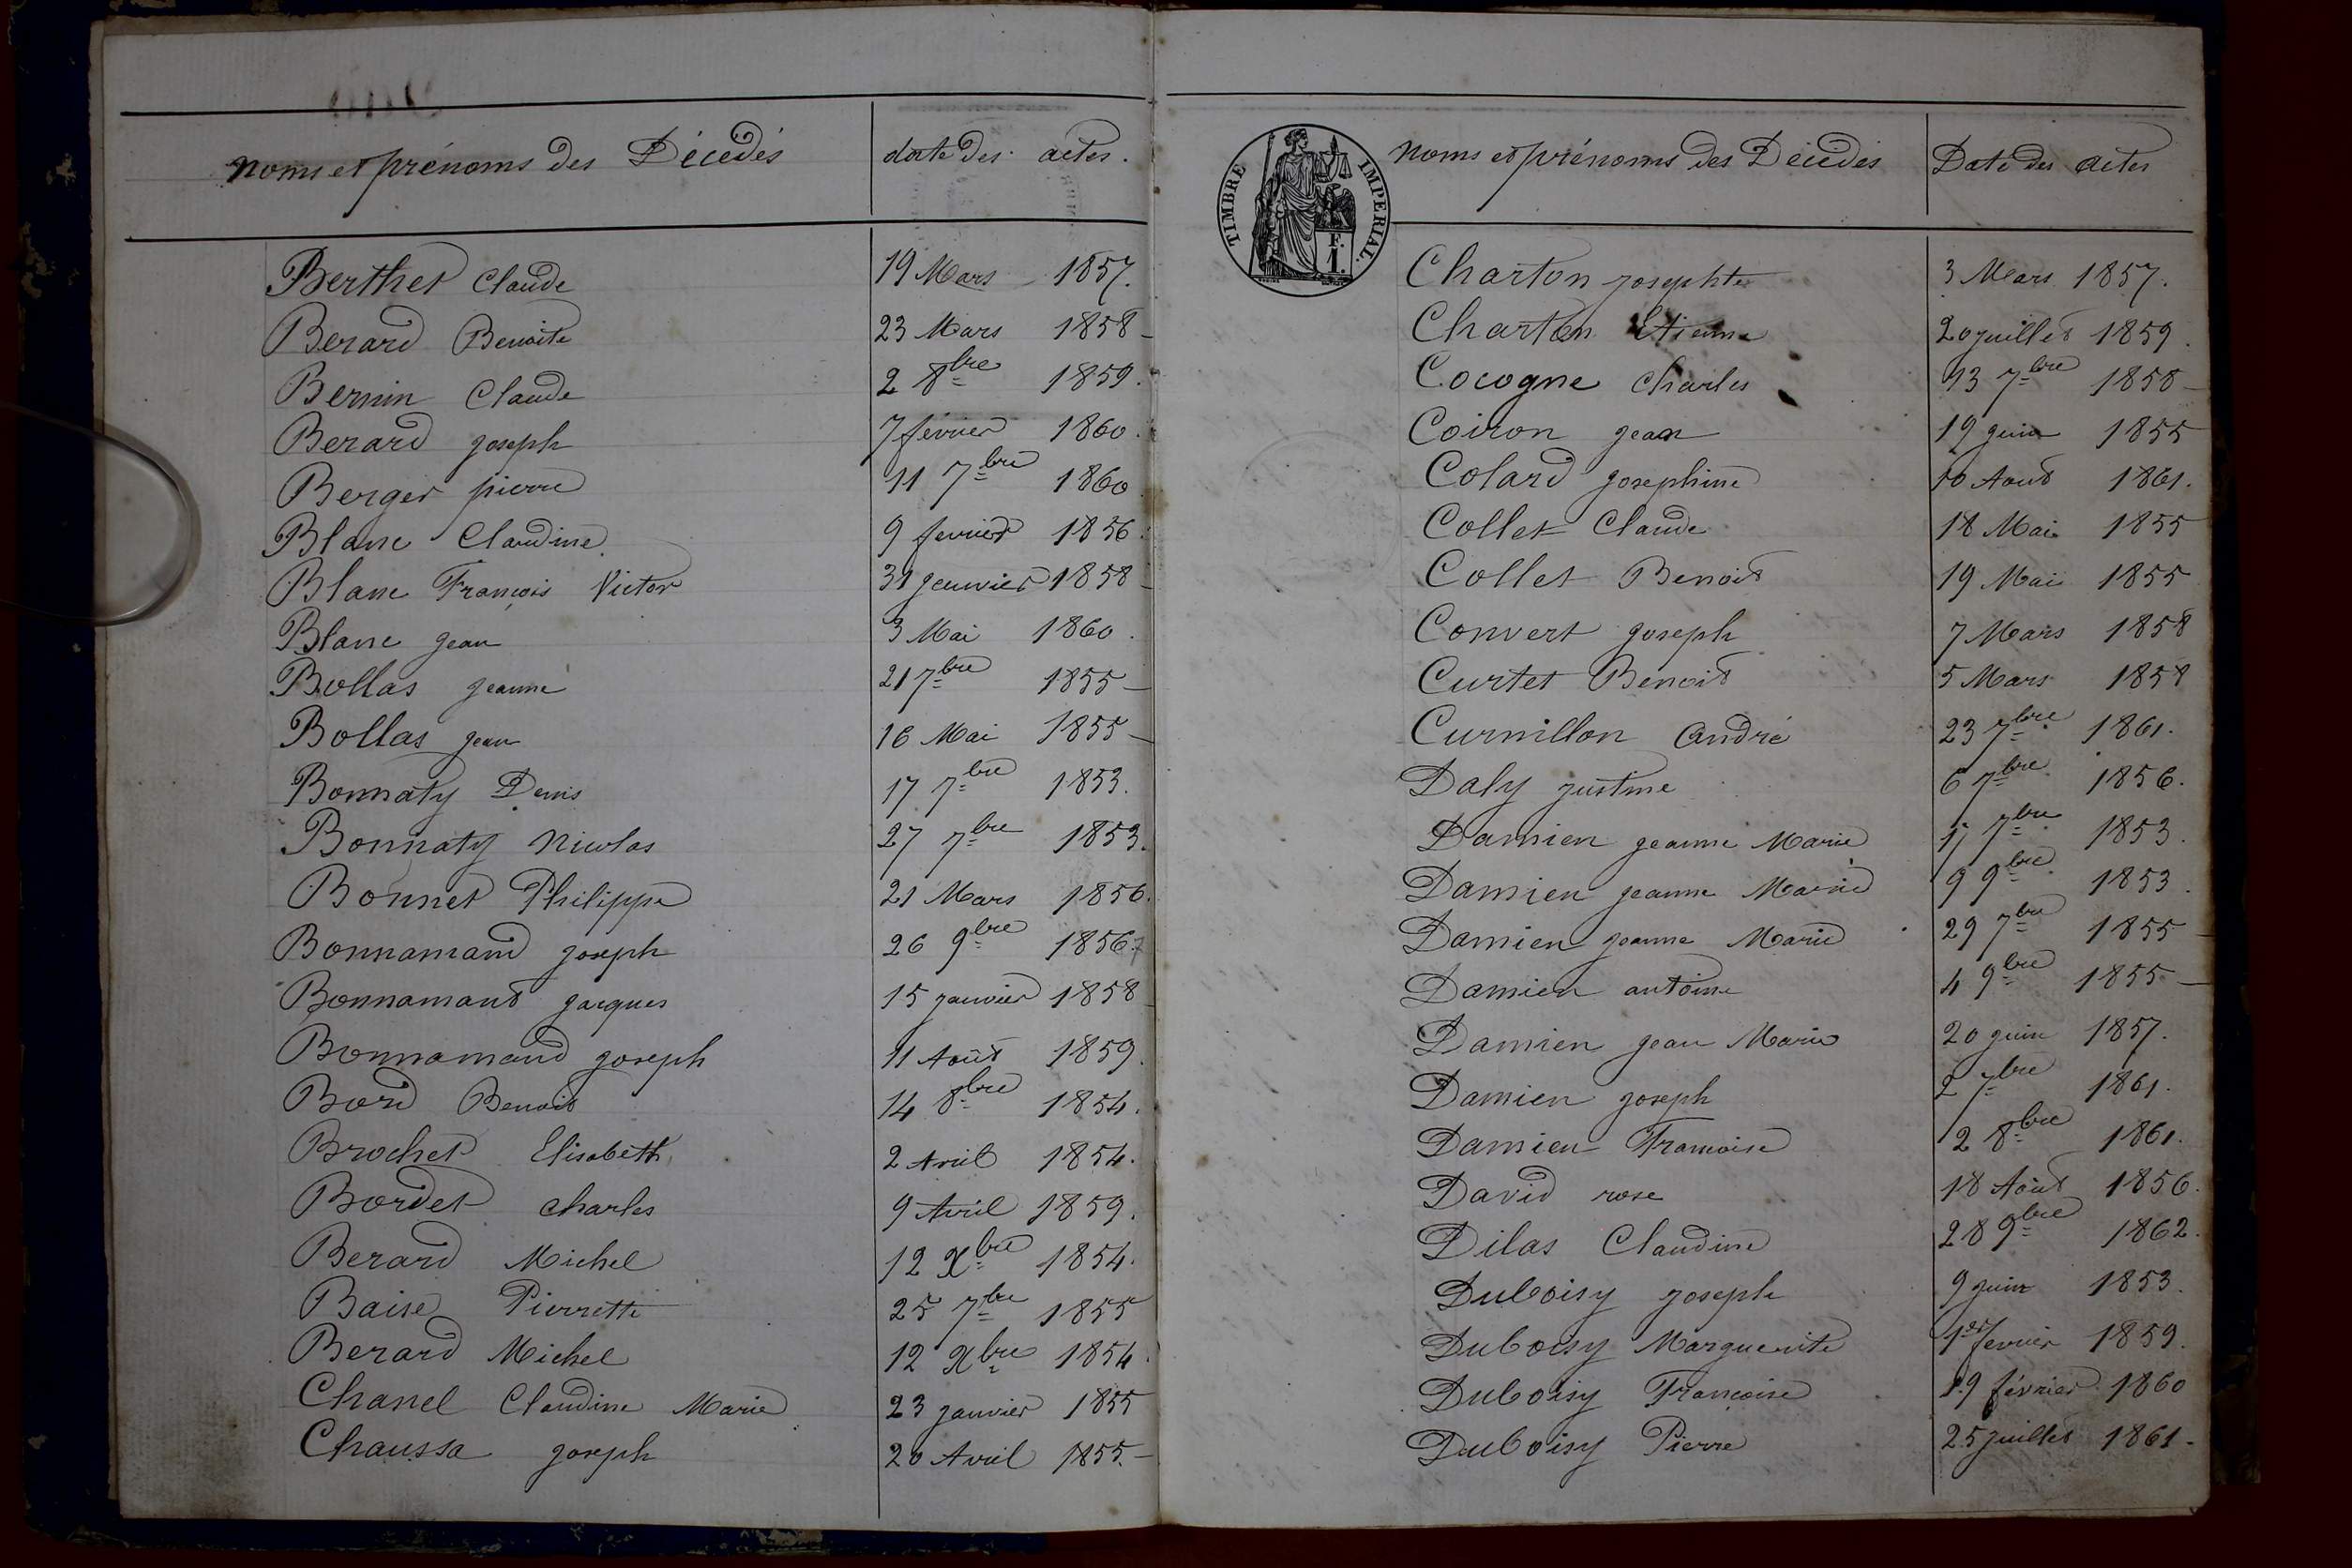 noms et prénoms des Décédés date des actes.
Berthet Claude 19 Mars 1857.
Berard Benoite 23 Mars 1858 -
Bernin Claude 2 8bre 1859.
Berard joseph 7 février 1860.
Berger pierre 11 7bre 1860
Blanc Claudine 9 fevrier 1856.
Blanc François Victor 31 jenvier 1858 -
Blanc jean 3 Mai 1860.
Bollas jeanne 21 7bre 1855 -
Bollas jean 16 Mai 1855 -
Bonnaty Denis 17 7bre 1853.
Bonnaty Nicolas 27 7bre 1853.
Bonnet Philippe 21 Mars 1856.
Bonnamand joseph 26 9bre 1856
Bonnamant jacques 15 janvier 1858 -
Bonnamand joseph 11 Août 1859.
Bord Benoit 14 8bre 1854.
Brochet Elisabeth 2 Avril 1854.
Bordet charles 9 Avril 1859.
Berard Michel 12 Xbre 1854.
Baise Pierrette 25 7bre 1855
Berard Michel 12 Xbre 1854.
Chanel Claudine Marie 23 janvier 1855
Chaussa joseph 20 Avril 1855. -
TIMBRE IMPERIAL.
F.
1.
Noms et prénoms des Décédés Date des actes
Charton josephte 3 Mars 1857.
Charton Etienne 20 juillet 1859.
Cocogne charles 13 7bre 1858 -
Coiron jean 19 juin 1855
Colard josephine 10 Aout 1861.
Collet Claude 18 Mai 1855
Collet Benoit 19 Mai 1855
Convert joseph 7 Mars 1858
Curtet Benoit 5 Mars 1858
Curnillon André 23 7bre 1861.
Daly justine 6 7bre 1856.
Damien jeanne Marie 17 7bre 1853.
Damien jeanne Marie 9 9bre 1853.
Damien jeanne Marie 29 7bre 1855 -
Damien antoine 4 9bre 1855 -
Damien jean Marie 20 juin 1857.
Damien joseph 2 7bre 1861.
Damien Francoise 2 8bre 1861.
David rose 18 Août 1856.
Dilas Claudine 28 9bre 1862.
Duboisy joseph 9 juin 1853.
Duboisy Marguerite 1er fevrier 1859.
Duboisy Francoise 19 février 1860
Duboisy Pierre 25 juillet 1861 -